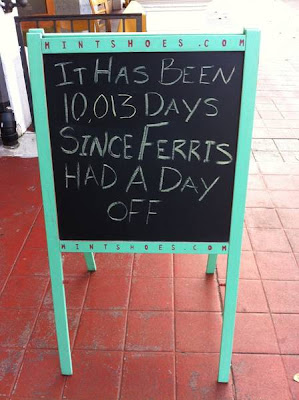 MINTSHOES.COM
IT HAS BEEN
10,013 DAYS
SINCE FERRIS
HAD A DAY
OFF
MINTSHOES.COM